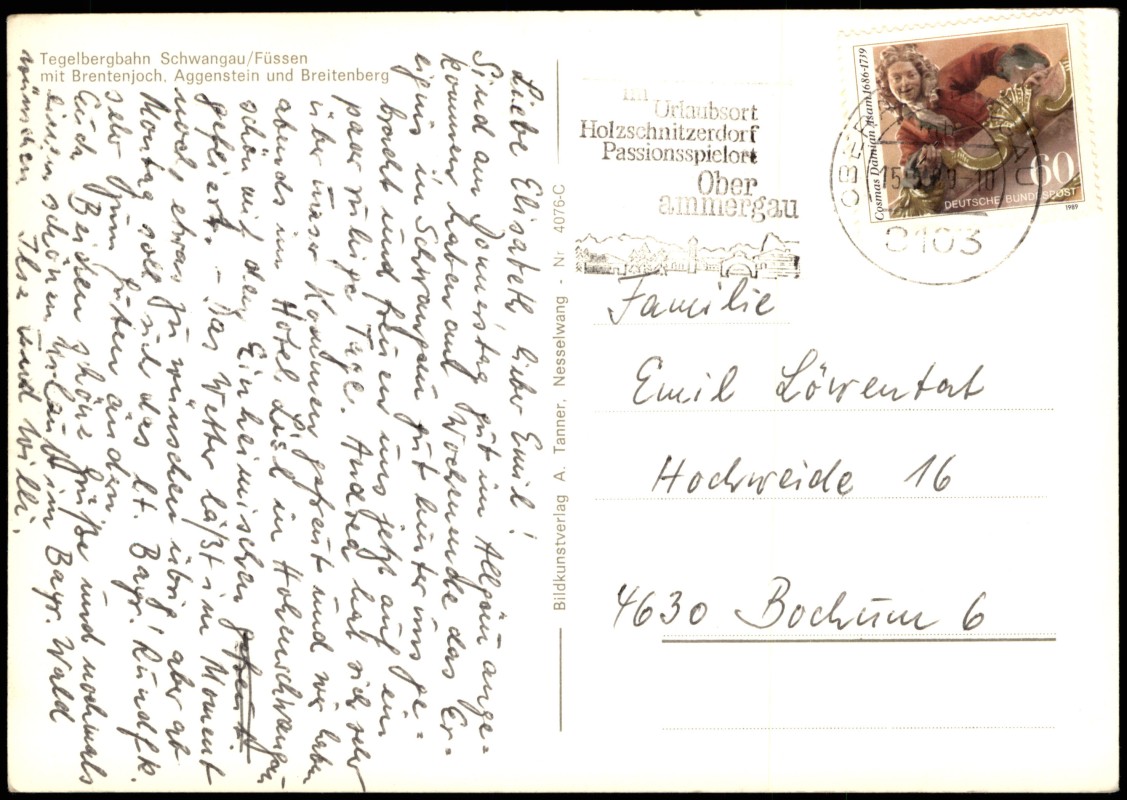 Tegelbergbahn Schwangau/Füssen
mit Brentenjoch, Aggenstein und Breitenberg
Liebe Elisabeth, lieber Emil!
Sind am Donnerstag gut im Allgäu ange=
kommen, haben am Wochenende das Er=
eignis in Schwangau gut hinter uns ge=
bracht und freuen uns jetzt auf ein
paar ruhige Tage. Andrea hat sich sehr
über unser Kommen gefreut und wir haben
abends im Hotel Lisl in Hohenschwangau
schön mit den Einheimischen gefreut
gefeiert. - Das Wetter läßt im Moment
noch etwas zu wünschen übrig, aber ab
Montag soll sich das lt. Bayr. Rundfk.
sehr zum Guten ändern.
Euch Beiden schöne Grüße und nochmals
einen schönen Urlaub im Bayr. Wald
wünschen Ilse und Willi.
Bildkunstverlag A. Tanner, Nesselwang - Nr. 4076-C
Im
Urlaubsort
Holzschnitzerdorf
Passionsspielort
Ober
ammergau
8103
Cosmas Damian Asam 1686-1739
60
DEUTSCHE BUNDESPOST
1989
Familie
Emil Löwentat
Hochweide 16
4630 Bochum 6